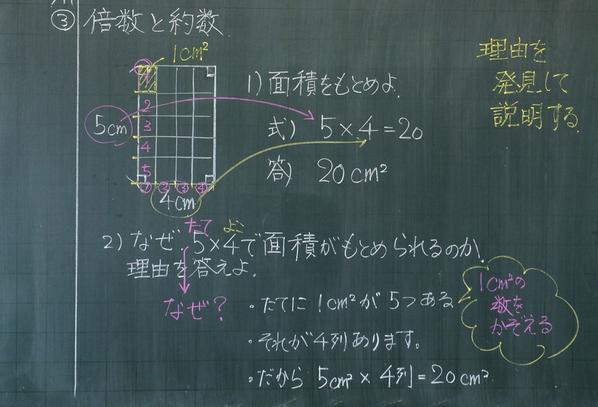 ③ 倍数と約数
1cm²
1
2
3
4
5
5cm
① ② ③ ④
4cm
1) 面積をもとめよ.
式) 5×4=20
答) 20cm²
理由を
発見して
説明する.
たて よこ
2) なぜ、5×4で面積がもとめられるのか.
理由を答えよ.
なぜ?
・たてに1cm²が5つある
・それが4列あります。
・だから 5cm²×4列=20cm²
1cm²の
数を
かぞえる